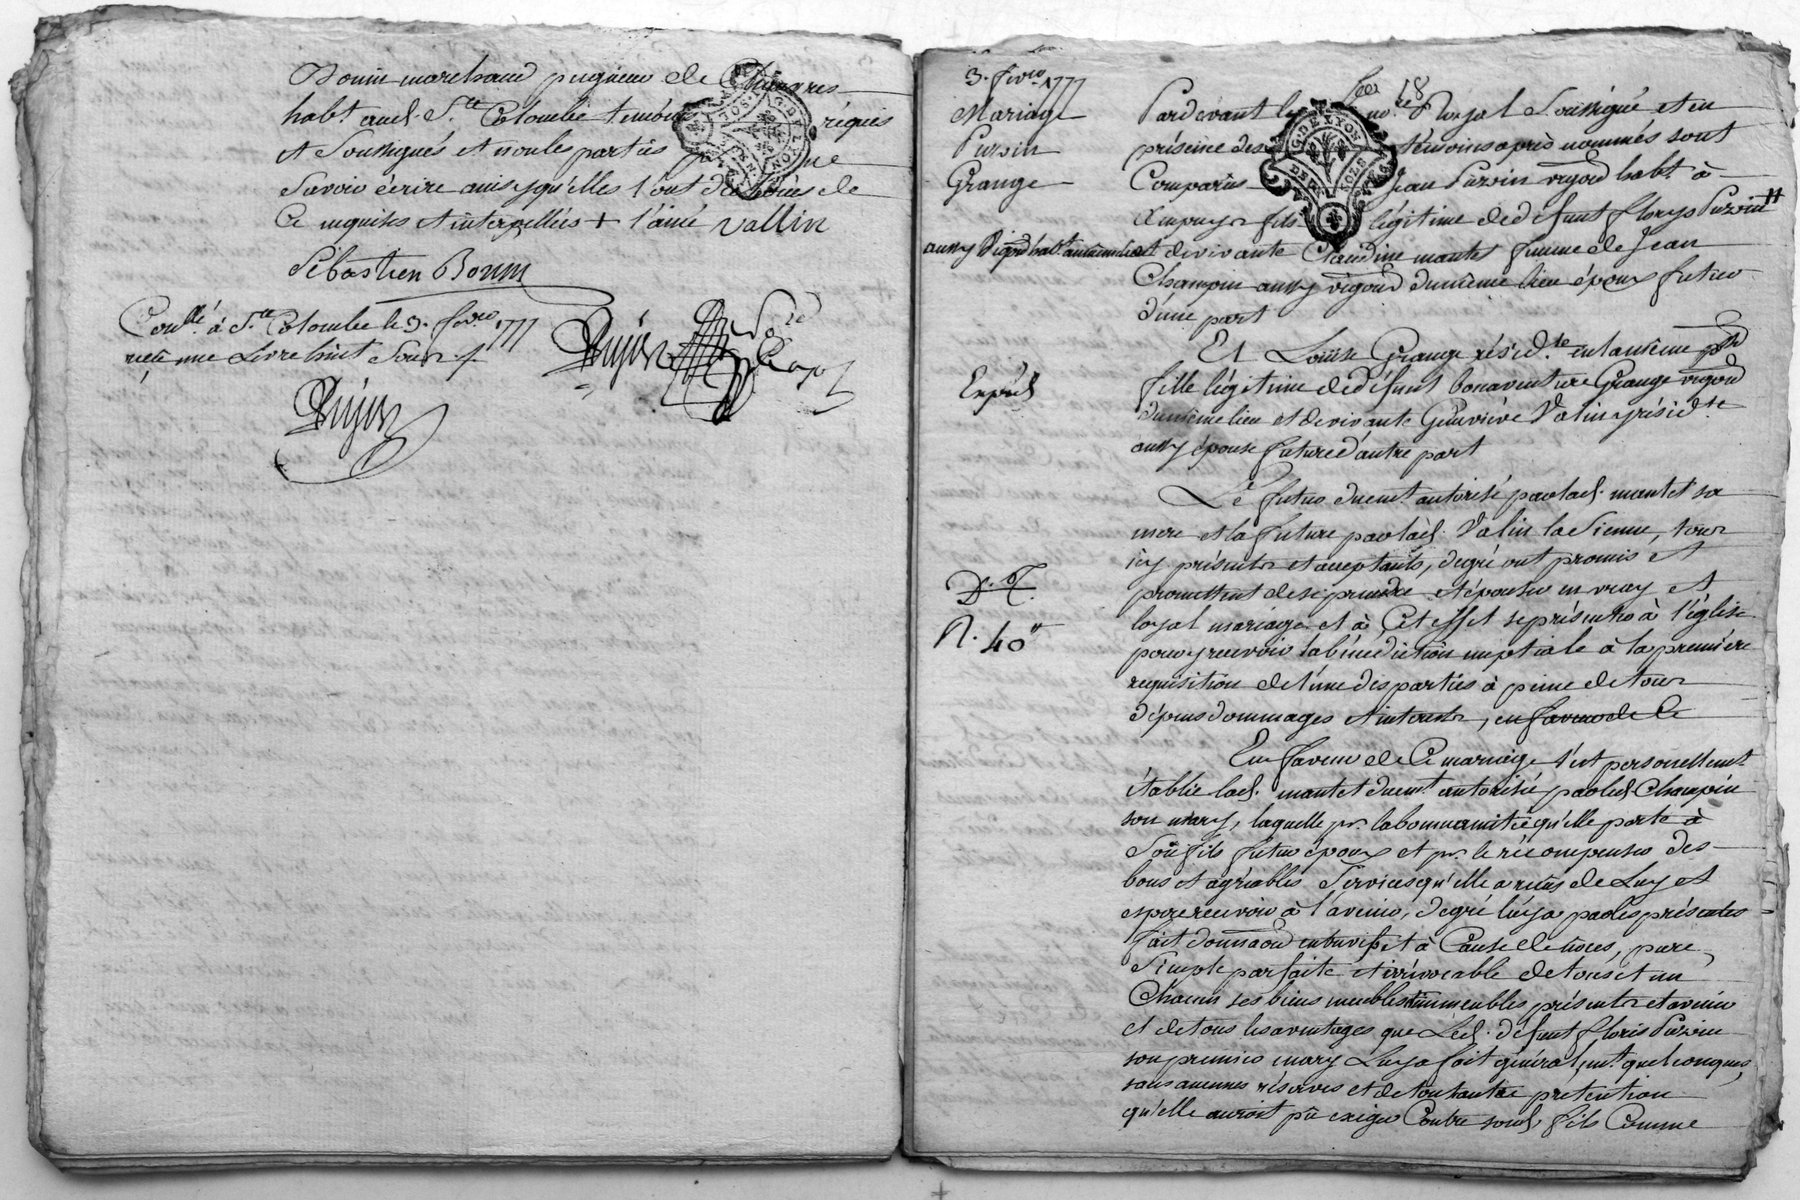 Bonin marchand peigneur de Chanvres
habt. aud. Ste. Colombe temoins réquis
et Soussignés et non les parties
Savoir écrire ainsy qu'elles l'ont
Ce requises et interpellées + l'ainé Vallin
Sébastien Bonin
Conllé. à Ste. Colombe le 3. fevrier 1777
reçu une Livre huit Sous
Dujon
Dujon
3. fevrier 1777
Mariage
Purvin
Grange
Expéd
D. M.
N. 40
G. DE LYON
18
Pardevant le no.re Royal Soussigné et en
présence des témoins après nommés sont
Comparûs Jean Purvin vigon habt. à
Ampuys fils légitime de défunt florys Purvin
aussy vigon habt. au même lieu et de vivante Claudine mantet femme de Jean
Champin aussy vigon du même lieu époux futur
d'une part
Et Loüise Grange résid.te en la même
fille légitime de défunt bonaventure Grange vigon
du même lieu et de vivante Généviève Valin y résid.te
aussy épouse future d'autre part
Le futur duemt. autorisé par lad. mantet sa
mere et la future par lad. Valin la Sienne, tous
icy présents et acceptants, de gré ont promis et
promettent de se prendre et épouser en vray et
loyal mariage et à Cet effet se présenter à l'église
pour y recevoir la bénédiction nuptiale à la première
requisition de l'une des parties à peine de tous
dépens dommages et interests, en faveur de Ce
En faveur de Ce mariage s'est personellement
établie lad. mantet duemt. autorisée par led. Champin
son mary, laquelle pr. la bonne amitié qu'elle porte à
Son fils futur époux et pr. le récompenser des
bons et agréables Services qu'elle a reçus de Luy et
espere recevoir à l'avenir, de gré luy a par les présentes
fait donnaon entrevifs et à Cause de nôces, pure
Simple parfaite et irrévocable de tous et un
Chacun ses biens meubles immeubles présents et avenir
et de tous les avantages que Led. défunt floris Purvin
son premier mary Luy a fait généralemt. quelconques,
sans aucunes réserves et de toute autre pretention
qu'elle auroit pû exiger Contre sond. fils Comme